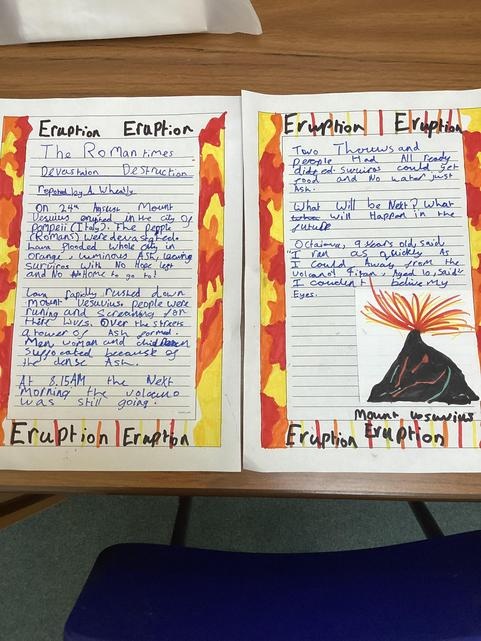 Eruption Eruption
The Roman times
Devastaion Destruction
reported by A. Wheatly
On 24th August Mount
Vesuvius erupted in the city of
Pompeii (Italy). The people
(Romans) were devastated.
have flooded whole city in
orange, luminous Ash, leaving
survivos with No Hope left
and No Home to go to!
Lava rapidly rushed down
Mount Vesuvius. people were
runing and screaming for
their lives. Over the streets
a tower of Ash formed.
Men woman and children
Suffocated because of
the dense Ash.
At 8.15AM the Next
Morning the volcano
was still going.
Eruption Eruption
Eruption Eruption
Two Thousand
people Had All ready
died. survivos could get
food and No water just
Ash.
What Will be Next? What
will Happen in the
future
Octavius, 9 years old, said
"I ran as quickly As
I could Away from the
volcano! Titan, Aged 10, said
I couldent believe My
Eyes.
Mount vesuvius
Eruption Eruption